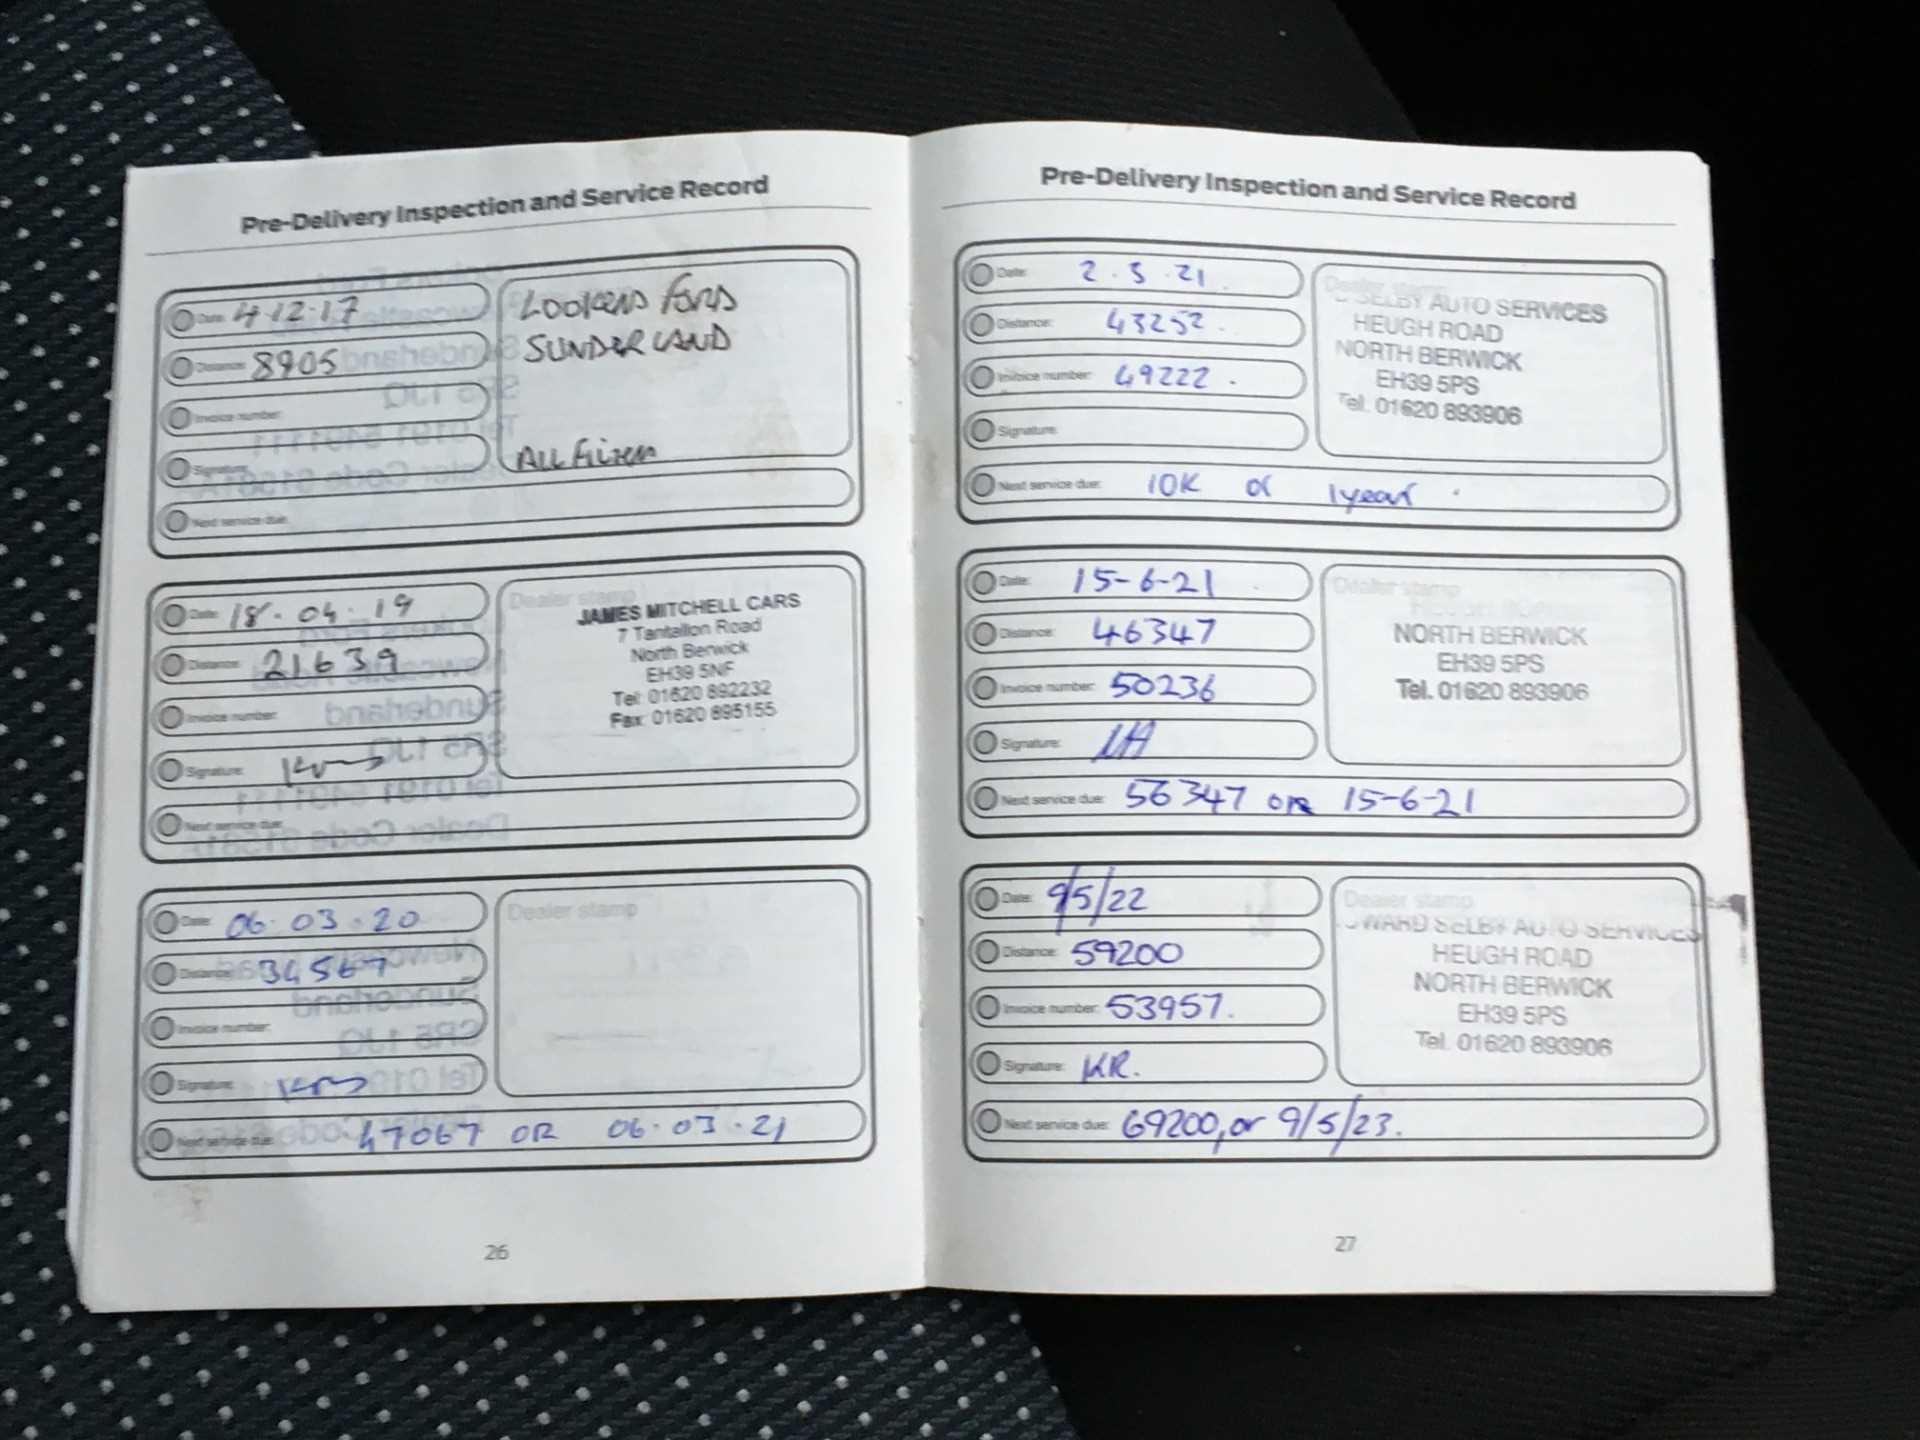 Pre-Delivery Inspection and Service Record
Date: 4.12.17
Distance: 8905
Invoice number:
Signature:
Next service due:
LOOKERS FORD
SUNDERLAND
ALL Filters
Date: 18.04.19
Distance: 21639
Invoice number:
Signature:
Next service due:
Dealer stamp
JAMES MITCHELL CARS
7 Tantallon Road
North Berwick
EH39 5NF
Tel: 01620 892232
Fax: 01620 895155
Date: 06.03.20
Distance: 34567
Invoice number:
Signature:
Next service due: 47067 OR 06.03.21
Dealer stamp
26
Pre-Delivery Inspection and Service Record
Date: 2.3.21.
Distance: 43252.
Invoice number: 49222.
Signature:
Next service due: 10K or 1year.
Dealer stamp
SELBY AUTO SERVICES
HEUGH ROAD
NORTH BERWICK
EH39 5PS
Tel. 01620 893906
Date: 15-6-21
Distance: 46347
Invoice number: 50236
Signature:
Next service due: 56347 OR 15-6-21
Dealer stamp
NORTH BERWICK
EH39 5PS
Tel. 01620 893906
Date: 9/5/22
Distance: 59200
Invoice number: 53957.
Signature: KR.
Next service due: 69200, or 9/5/23.
Dealer stamp
SELBY AUTO SERVICES
HEUGH ROAD
NORTH BERWICK
EH39 5PS
Tel. 01620 893906
27